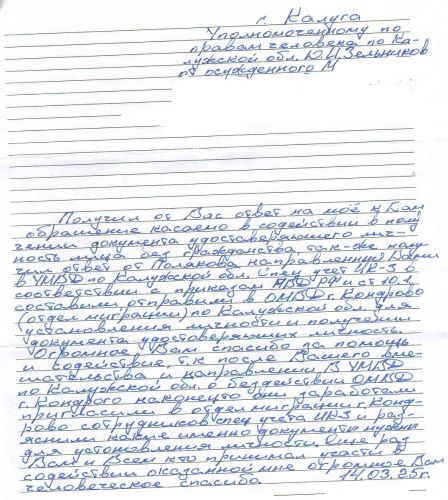 г. Калуга
Уполномоченному по
правам человека по Ка-
лужской обл. Ю.И. Зельников
от осужденного М
Получил от Вас ответ на моё к Вам
обращение касаемо в содействии в полу
чении документа удостоверяющего лич-
ность лица без гражданства так-же полу
чил ответ от Полякова направленный Вами
в УМВД по Калужской обл. Спец учет ИК-3 в
соответствии с приказам МВД РФ и ст 10.1
составили отправили в ОМВД г. Кондрово
(отдел миграции) по Калужской обл. для
установления личности и получении
документа удостоверяющих личность.
Огромное Вам спасибо за помощь
и содействие, т.к после Вашего вме-
шательства и направлении в УМВД
по Калужской обл. о бездействии ОМВД
г. Кондрого наконецто они заработали
пригласили в отдел миграции г. Конд-
рово сотрудников спец учета ИК-3 и раз-
яснили какие именно документы нужны
для устоновления личности. Еще раз
Вам и Всем кто принимал участи в
содействии оказанной мне огромное Вам
человеческое спасибо. 14.03.25г.